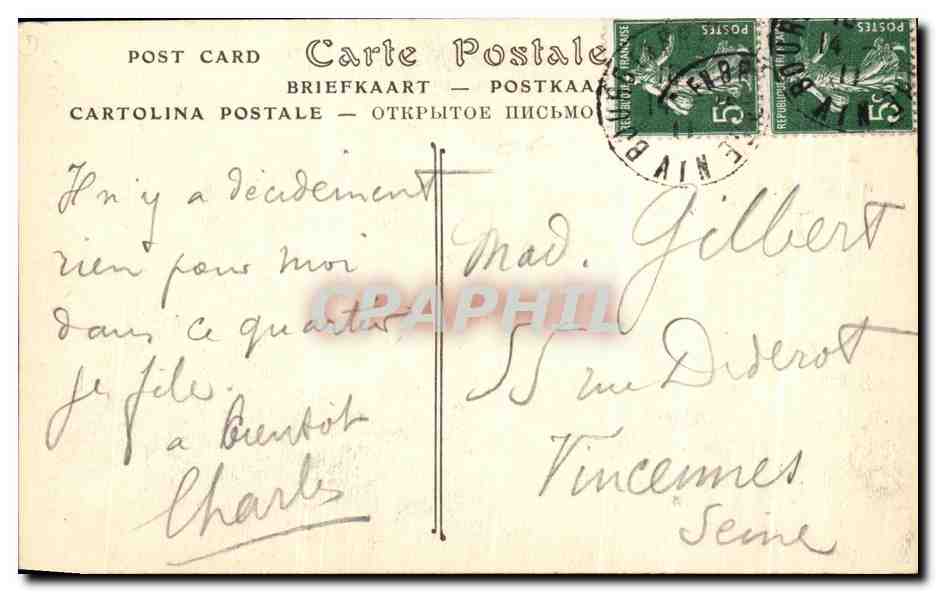 POST CARD Carte Postale
BRIEFKAART — POSTKAA
CARTOLINA POSTALE — ОТКРЫТОЕ ПИСЬМО
REPUBLIQUE FRANÇAISE POSTES 5c
REPUBLIQUE POSTES 5c
Il n'y a décidement
rien pour moi
dans ce quartier
je file.
a bientôt
Charles
Mad. Gilbert
55 rue Diderot
Vincennes
Seine
CPAPHIL